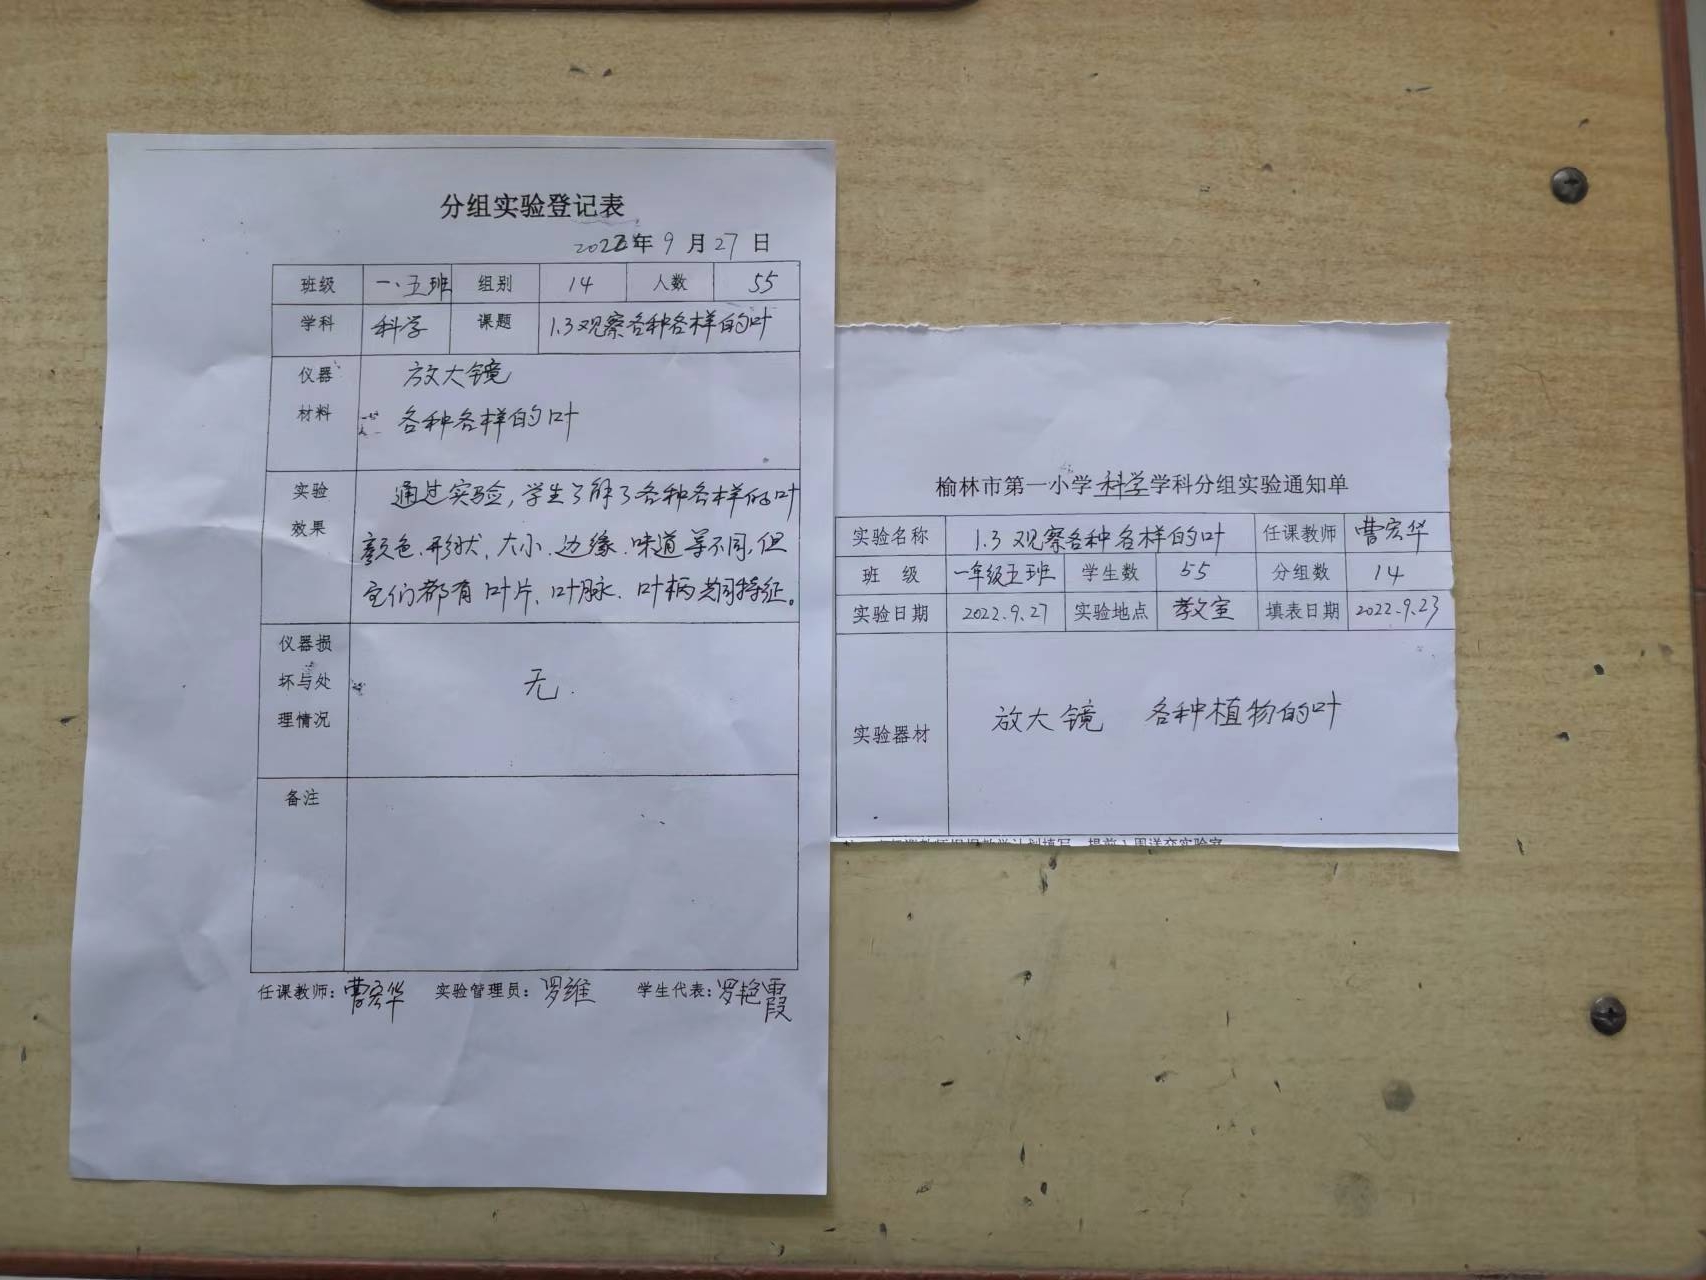 分组实验登记表
2022年9月27日
班级 一、五班 组别 14 人数 55
学科 科学 课题 1.3观察各种各样的叶
仪器 放大镜
材料 各种各样的叶
实验 通过实验,学生了解了各种各样的叶
效果 颜色、形状、大小、边缘、味道等不同,但
它们都有叶片、叶脉、叶柄共同特征。
仪器损
坏与处 无.
理情况
备注
任课教师:曹宏华 实验管理员:罗维 学生代表:罗艳霞
榆林市第一小学科学学科分组实验通知单
实验名称 1.3观察各种各样的叶 任课教师 曹宏华
班 级 一年级五班 学生数 55 分组数 14
实验日期 2022.9.27 实验地点 教室 填表日期 2022.9.23
实验器材 放大镜 各种植物的叶